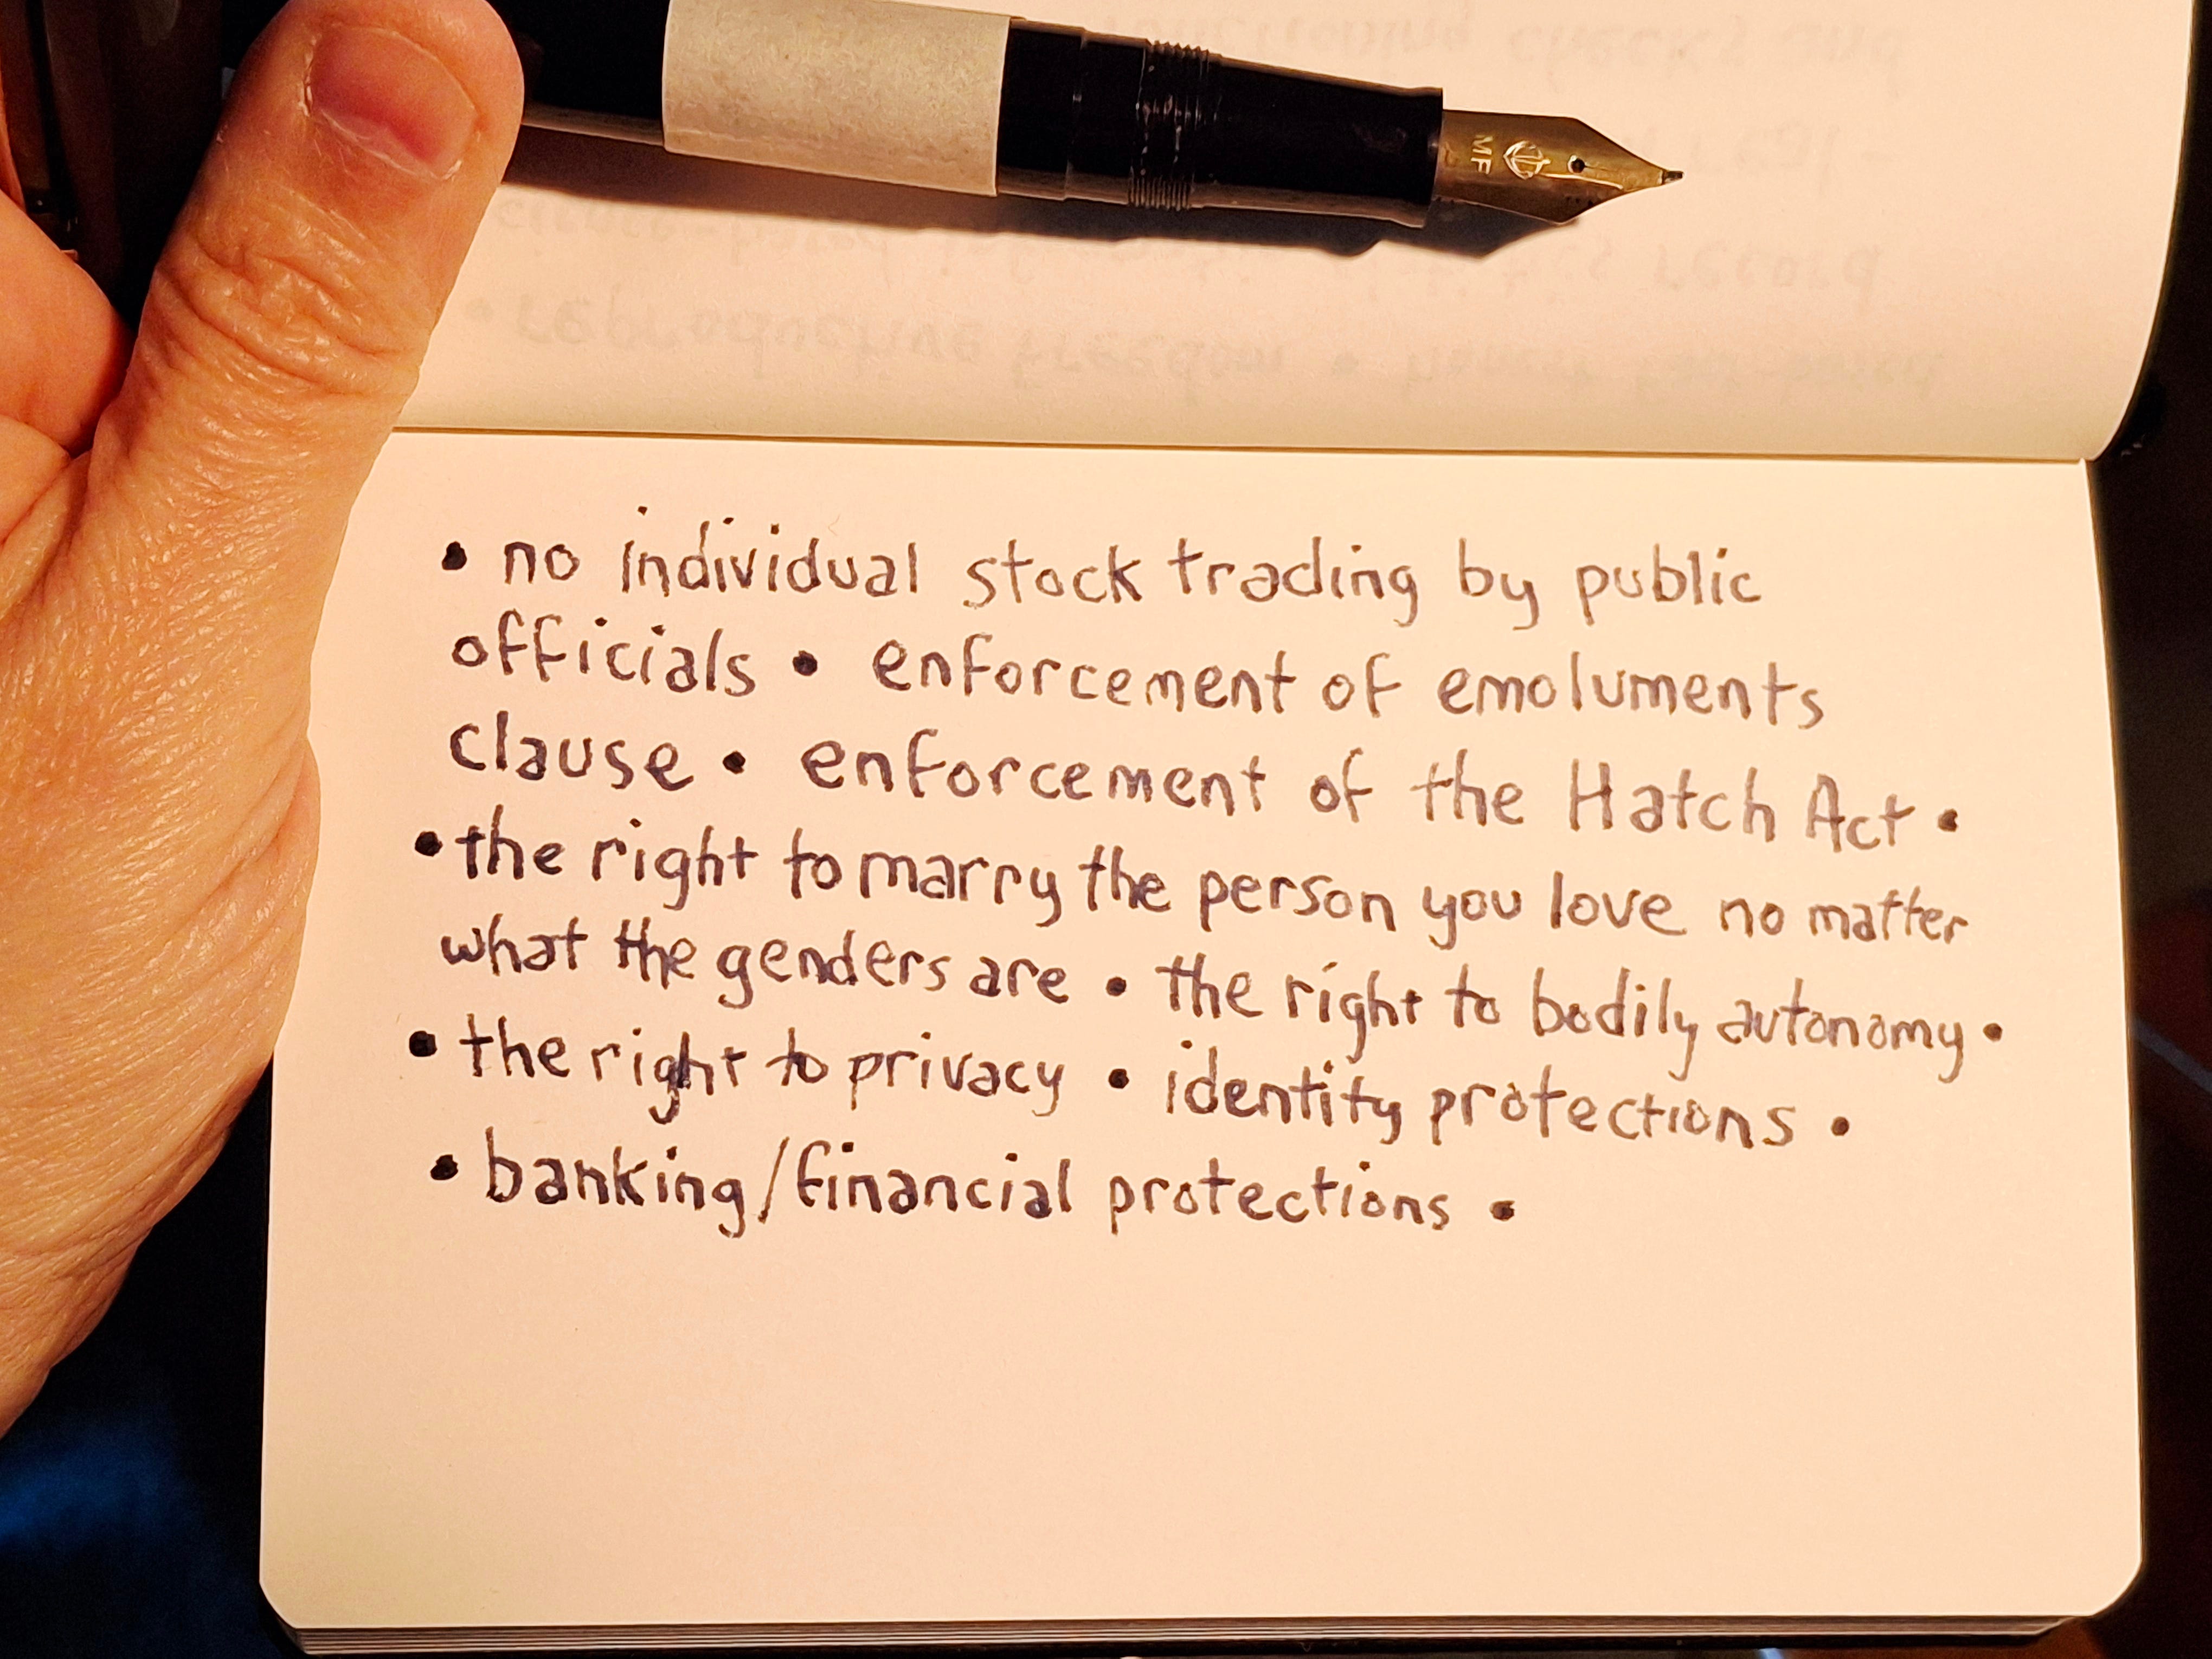 MF
• no individual stock trading by public
officials • enforcement of emoluments
clause • enforcement of the Hatch Act •
• the right to marry the person you love no matter
what the genders are • the right to bodily autonomy •
• the right to privacy • identity protections •
• banking/financial protections •